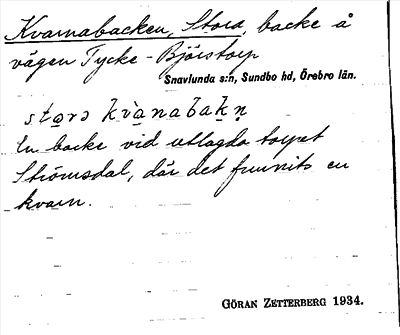 Kvarnabacken, Stora, backe å
vägen Tycke - Björstorp
Snavlunda s:n, Sundbo hd, Örebro län.
stọrə kvànabakn
En backe vid utlagda torpet
Strömsdal, där det funnits en
kvarn.
GÖRAN ZETTERBERG 1934.